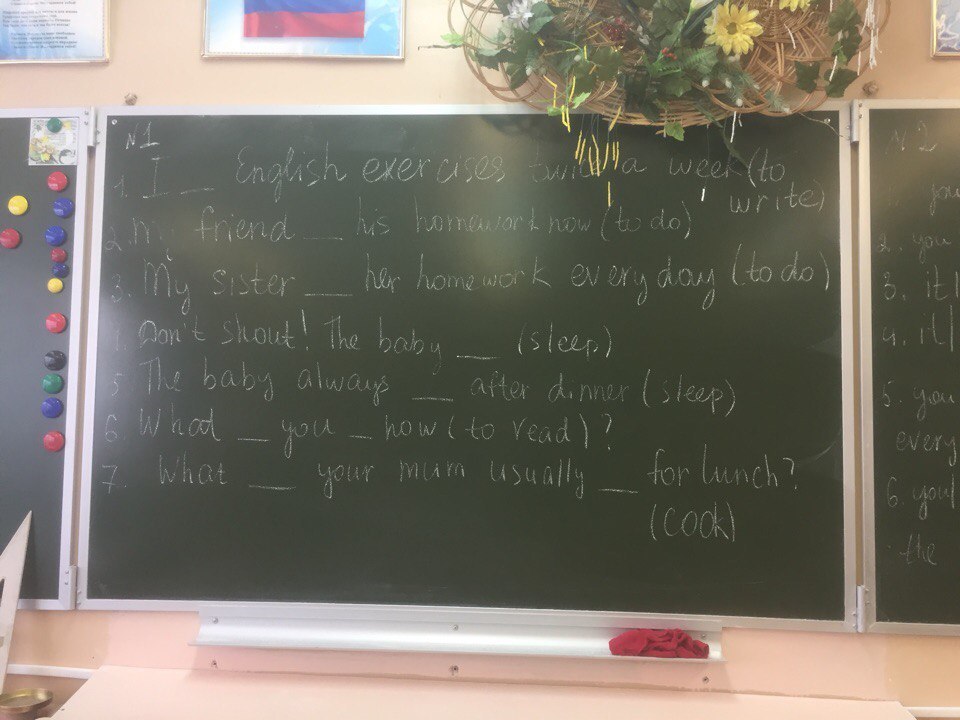 N1
1. I __ English exercises twice a week (to
write)
2. My friend __ his homework now (to do)
3. My sister __ her homework every day (to do)
Don't shout! The baby __ (sleep)
5 The baby always __ after dinner (sleep)
6. What __ you _ now (to read)?
7. What __ your mum usually __ for lunch?
(cook)
N2
you
2. you
3. it/
4. it/
5. you
every
6. you/
the